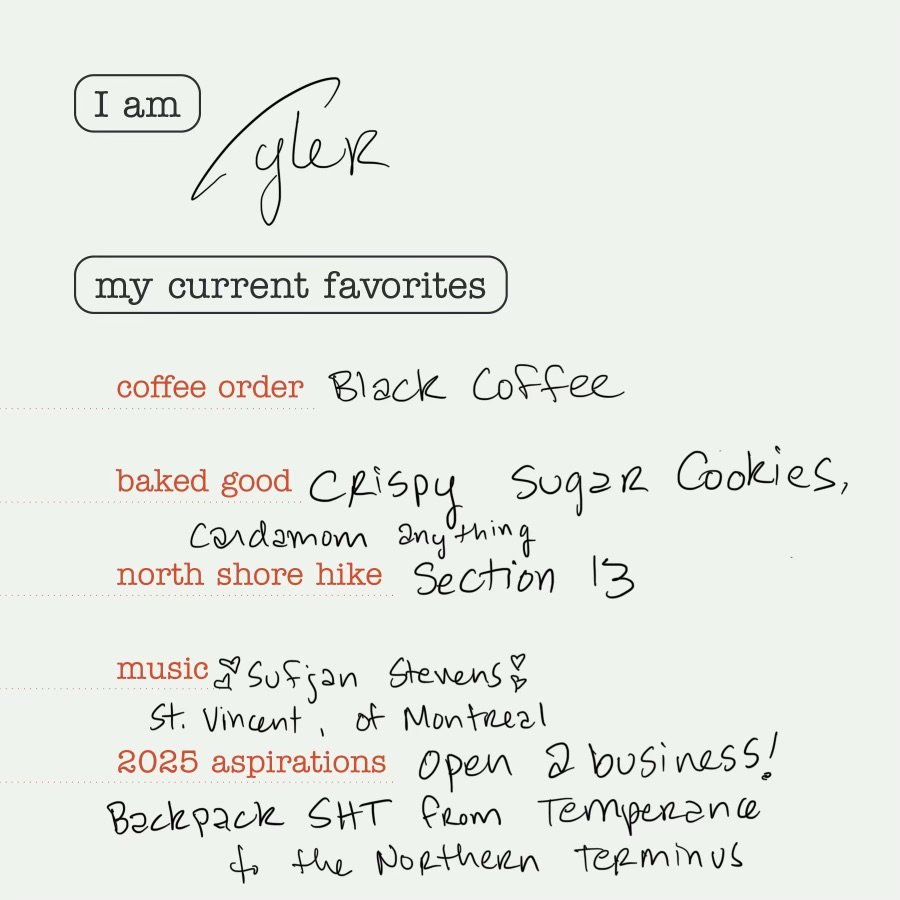 I am Tyler
my current favorites
coffee order Black Coffee
baked good Crispy Sugar Cookies,
Cardamom anything
north shore hike Section 13
music Sufjan Stevens
St. Vincent, of Montreal
2025 aspirations Open a business!
Backpack SHT from Temperance
to the Northern Terminus